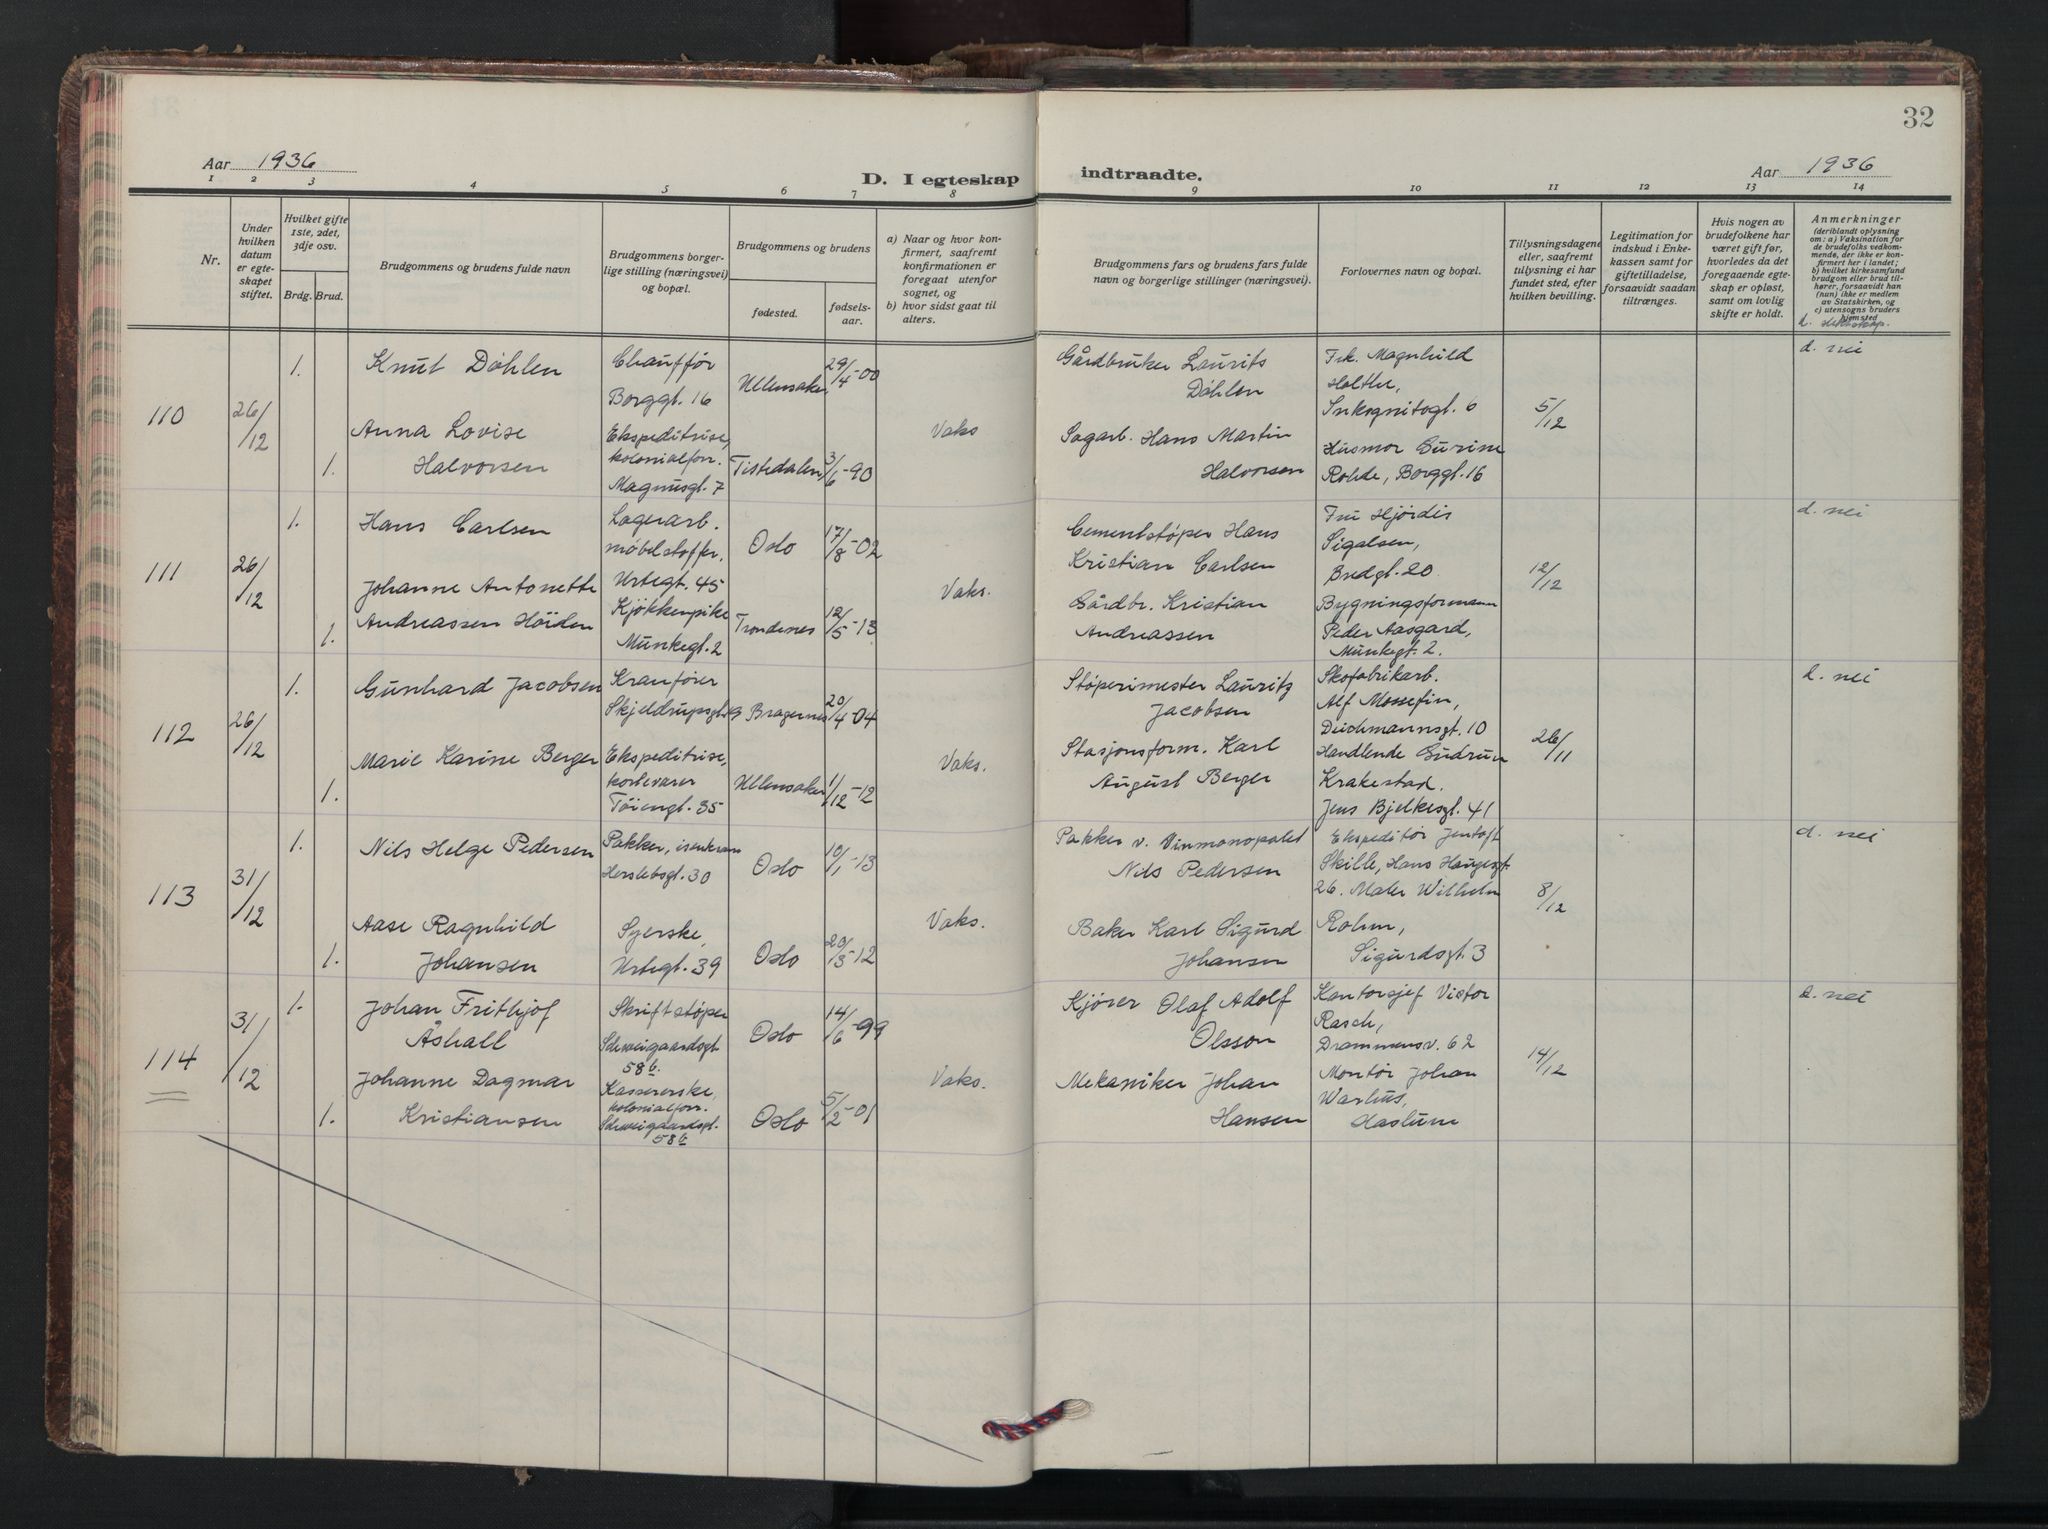 32
Aar 1936
D. I egteskap
indtraadte.
Aar 1936
1 2 3 4 5 6 7 8 9 10 11 12 13 14
Nr.
Under hvilken datum er egteskapet stiftet.
Hvilket gifte 1ste, 2det, 3dje osv.
Brdg. Brud.
Brudgommens og brudens fulde navn
Brudgommens borgerlige stilling (næringsvei) og bopæl.
Brudgommens og brudens
fødested.
fødselsaar.
a) Naar og hvor konfirmert, saafremt konfirmationen er foregaat utenfor sognet, og
b) hvor sidst gaat til alters.
Brudgommens fars og brudens fars fulde navn og borgerlige stillinger (næringsvei).
Forlovernes navn og bopæl.
Tillysningsdagene eller, saafremt tillysning ei har fundet sted, efter hvilken bevilling.
Legitimation for indskud i Enkekassen samt for giftetilladelse, forsaavidt saadan tiltrænges.
Hvis nogen av brudefolkene har været gift før, hvorledes da det foregaaende egteskap er opløst, samt om lovlig skifte er holdt.
Anmerkninger
(deriblandt oplysning om: a) Vaksination for de brudefolks vedkommende, der ikke er konfirmert her i landet; b) hvilket kirkesamfund brudgom eller brud tilhører, forsaavidt han (hun) ikke er medlem av Statskirken, og c) utensogns bruders hjemsted
110
26/12
1.
Knut Döhlen
Chauffør
Borggt. 16
Ullensaker
29/4-00
Gårdbruker Laurits
Döhlen
Frk. Magnhild
Holthe,
Inkognitogt. 6
5/12
d. nei
1.
Anna Lovise
Halvorsen
Ekspeditrise,
kolonialforr.
Magnusgt. 7
Tistedalen
3/6-90
Vaks
Sagarb. Hans Martin
Halvorsen
Husmor Gurine
Rohde, Borggt. 16
111
26/12
1.
Hans Carlsen
Lagerarb.
møbelstoffer.
Urtegt. 45
Oslo
17/8-02
Cementstøper Hans
Kristian Carlsen
Fru Hjördis
Sigalsen,
Bredgt. 20
12/12
d. nei
1.
Johanne Antonette
Andreassen Höiden
Kjökkenpike
Munkegt. 2
Trondenes
12/5-13
Vaks.
Gårdbr. Kristian
Andreassen
Bygningsformann
Peder Aasgard,
Munkegt. 2.
112
26/12
1.
Gunhard Jacobsen
Kranfører
Bragernes
20/4-04
Støperimester Lauritz
Jacobsen
Skofabrikarb.
Alf Mossefin,
Deichmannsgt. 10
26/11
d. nei
1.
Marie Karine Berger
Ekspeditrise,
kortevarer
Töiengt. 35
Ullensaker
1/12-12
Vaks.
Stasjonsform. Karl
August Berger
Handlende Gudrun
Krakestad.
Jens Bjelkesgt. 41
113
31/12
1.
Nils Helge Pedersen
Pakker, isenkram
Herslebsgt. 30
Oslo
10/1-13
Pakker v. Vinmonopolet
Nils Pedersen
Ekspeditör Jentoft
Skille, Hans Haugesgt.
26. Maler Wilhelm
8/12
d. nei
1.
Aase Ragnhild
Johansen
Syerske,
Urtegt. 39
Oslo
20/3-12
Vaks.
Baker Karl Sigurd
Johansen
Rohm,
Sigurdsgt. 3
114
31/12
1.
Johan Frithjof
Åshall
Skriftstøper
Schweigaardsgt.
58b.
Oslo
14/6-99
Kjører Olaf Adolf
Olsson
Kontorsjef Victor
Rasch,
Drammensv. 62
14/12
d. nei
1.
Johanne Dagmar
Kristiansen
Kassererske,
kolonialforr.
Schweigaardsgt.
58b
Oslo
5/2-01
Vaks.
Mekaniker Johan
Hansen
Montör Johan
Warhus,
Haslum